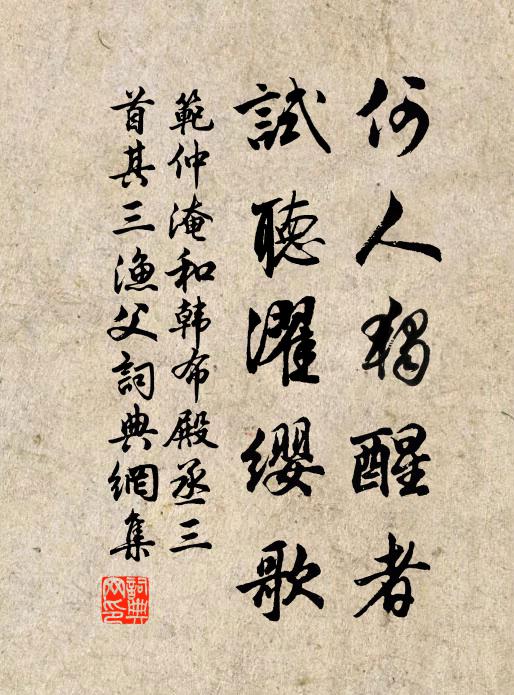 何人獨醒者
試聽濯纓歌
範仲淹和韩布殿丞三
首其三漁父詞典網集
詞典
網印